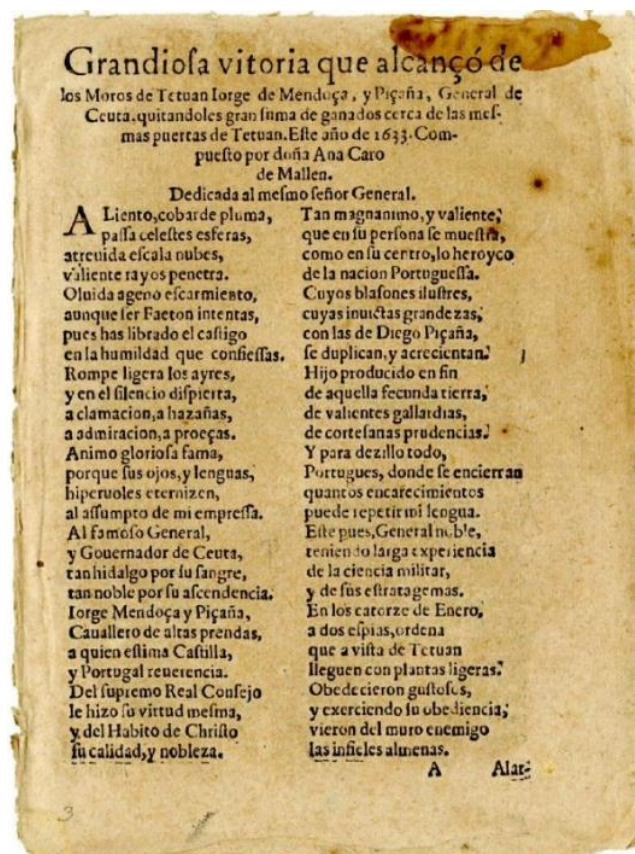 Grandioſa vitoria que alcançó de
los Moros de Tetuan Iorge de Mendoça, y Piçaña, General de
Ceuta, quitandoles gran ſuma de ganados cerca de las meſ-
mas puertas de Tetuan. Eſte año de 1633. Com-
pueſto por doña Ana Caro
de Mallen.
Dedicada al meſmo ſeñor General.
ALiento, cobarde pluma,
paſſa celeſtes esferas,
atreuida eſcala nubes,
valiente rayos penetra.
Oluida ageno eſcarmiento,
aunque ſer Faeton intentas,
pues has librado el caſtigo
en la humildad que confieſſas.
Rompe ligera los ayres,
y en el ſilencio diſpierta,
a clamacion, a hazañas,
a admiracion, a proeças.
Animo glorioſa fama,
porque ſus ojos, y lenguas,
hiperuoles eternizen,
al aſſumpto de mi empreſſa.
Al famoſo General,
y Gouernador de Ceuta,
tan hidalgo por ſu ſangre,
tan noble por ſu aſcendencia.
Iorge Mendoça y Piçaña,
Cauallero de altas prendas,
a quien eſtima Caſtilla,
y Portugal reuerencia.
Del ſupremo Real Conſejo
le hizo ſu virtud meſma,
y del Habito de Chriſto
ſu calidad, y nobleza.
Tan magnanimo, y valiente,
que en ſu perſona ſe mueſtra,
como en ſu centro, lo heroyco
de la nacion Portugueſſa.
Cuyos blaſones iluſtres,
cuyas inuictas grandezas,
con las de Diego Piçaña,
ſe duplican, y acrecientan.
Hijo producido en fin
de aquella fecunda tierra,
de valientes gallardias,
de corteſanas prudencias.
Y para dezillo todo,
Portugues, donde ſe encierran
quantos encarecimientos
puede repetir mi lengua.
Eſte pues, General noble,
teniendo larga experiencia
de la ciencia militar,
y de ſus eſtratagemas.
En los catorze de Enero,
a dos eſpias, ordena
que a viſta de Tetuan
lleguen con plantas ligeras.
Obedecieron guſtoſos,
y exerciendo ſu obediencia,
vieron del muro enemigo
las infieles almenas.
A Alar-
3